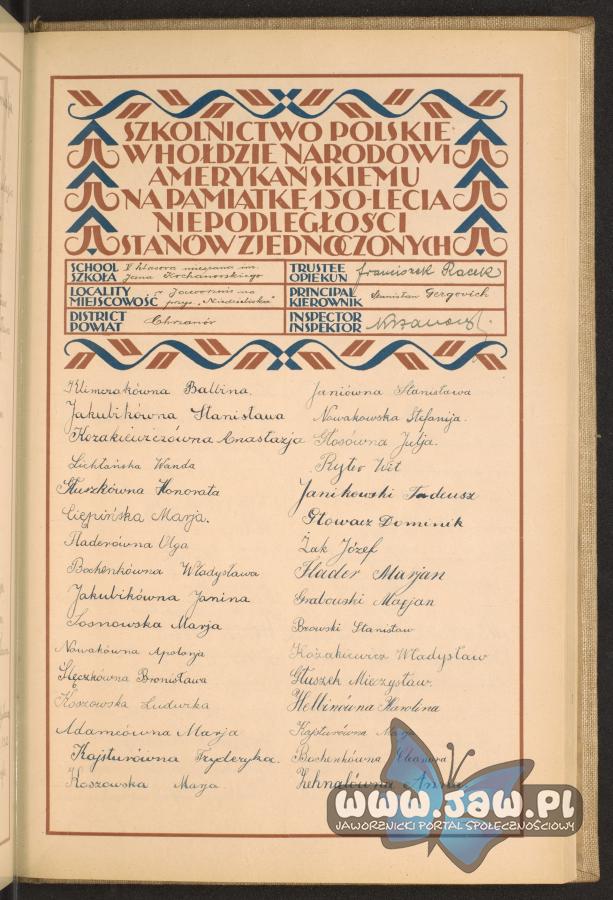 SZKOLNICTWO POLSKIE
W HOŁDZIE NARODOWI
AMERYKAŃSKIEMU
NA PAMIĄTKĘ 150-LECIA
NIEPODLEGŁOŚCI
STANÓW ZJEDNOCZONYCH
SCHOOL
SZKOŁA
V klasowa mieszana im.
Jana Kochanowskiego
TRUSTEE
OPIEKUN
Franciszek Racek
LOCALITY
MIEJSCOWOŚĆ
w Jaworznie na
przys. „Niedzieliska"
PRINCIPAL
KIEROWNIK
Stanisław Gergovich
DISTRICT
POWIAT
Chrzanów
INSPECTOR
INSPEKTOR
Klimczakówna Balbina
Jakubikówna Stanisława
Kozakiewiczówna Anastazja
Lichtańska Wanda
Głuszkówna Honorata
Ciępińska Marja.
Fladerówna Olga
Bochenkówna Władysława
Jakubikówna Janina
Sosnowska Marja
Nowakówna Apolonja
Ślęczkówna Bronisława
Koszowska Ludwika
Adamcówna Marja
Kajsturówna Fryderyka.
Koszowska Marja
Janiówna Stanisława
Nowakowska Stefanija.
Głosówna Julja.
Ryter Wit
Janikowski Tadeusz
Głowacz Dominik
Żak Józef
Flader Marjan
Grabowski Marjan
Bzowski Stanisław
Kozakiewicz Władysław
Głuszek Mieczysław.
Hellinówna Karolina
Kajsturówna Marja
Bochenkówna Eleonora
Anna
www.jaw.pl
JAWORZNICKI PORTAL SPOŁECZNOŚCIOWY